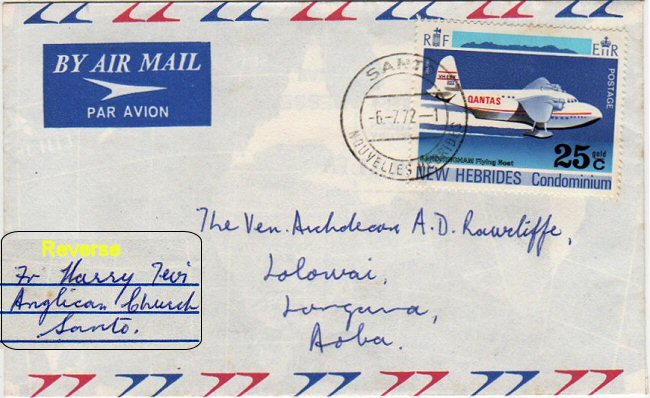 BY AIR MAIL
PAR AVION
SANTO
-6.-7.72-1
NOUVELLES HEBRIDES
R F E II R
POSTAGE
VH-EBX
QANTAS
SANDRINGHAM Flying Boat
25 gold C
NEW HEBRIDES Condominium
The Ven. Archdeacon A.D. Rawcliffe,
Lolowai,
Longana,
Aoba.
Reverse
Fr Harry Tevi
Anglican Church
Santo.